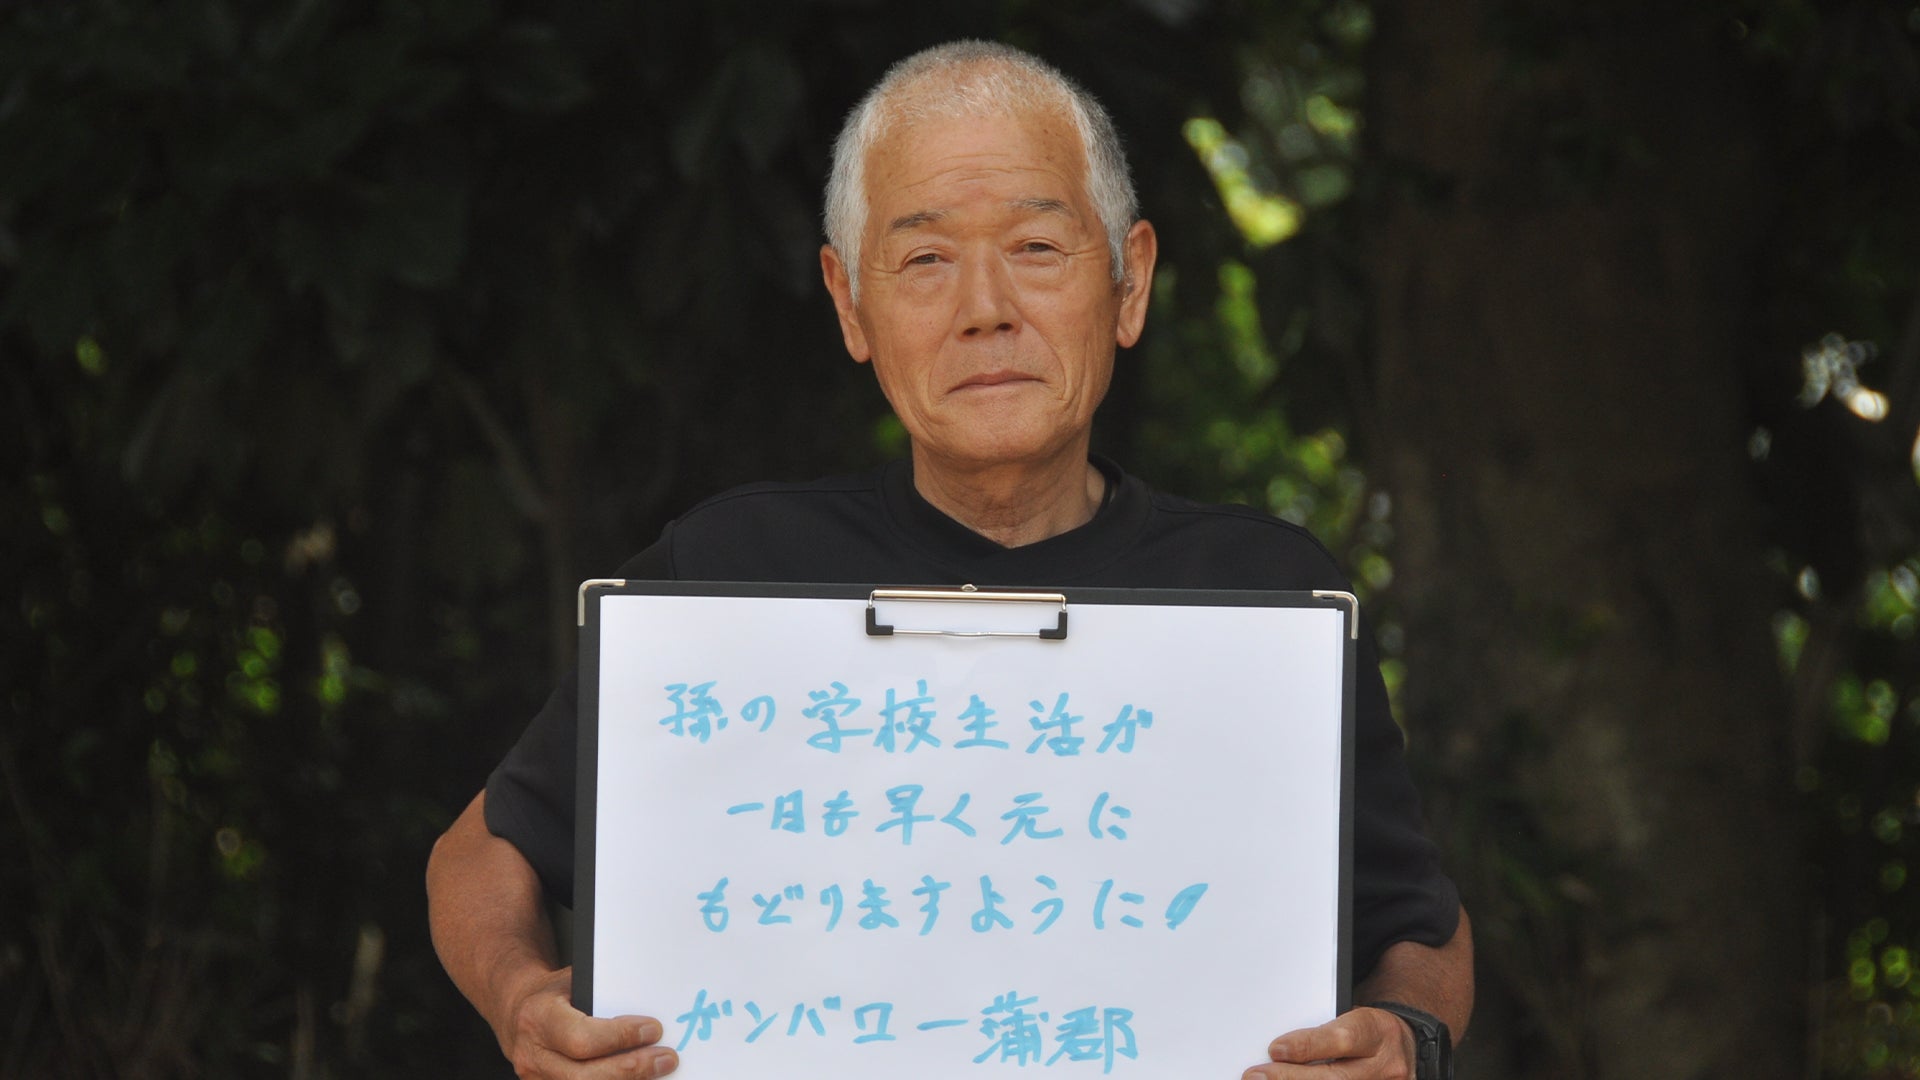 孫の学校生活が
一日も早く元に
もどりますように!
ガンバロー蒲郡